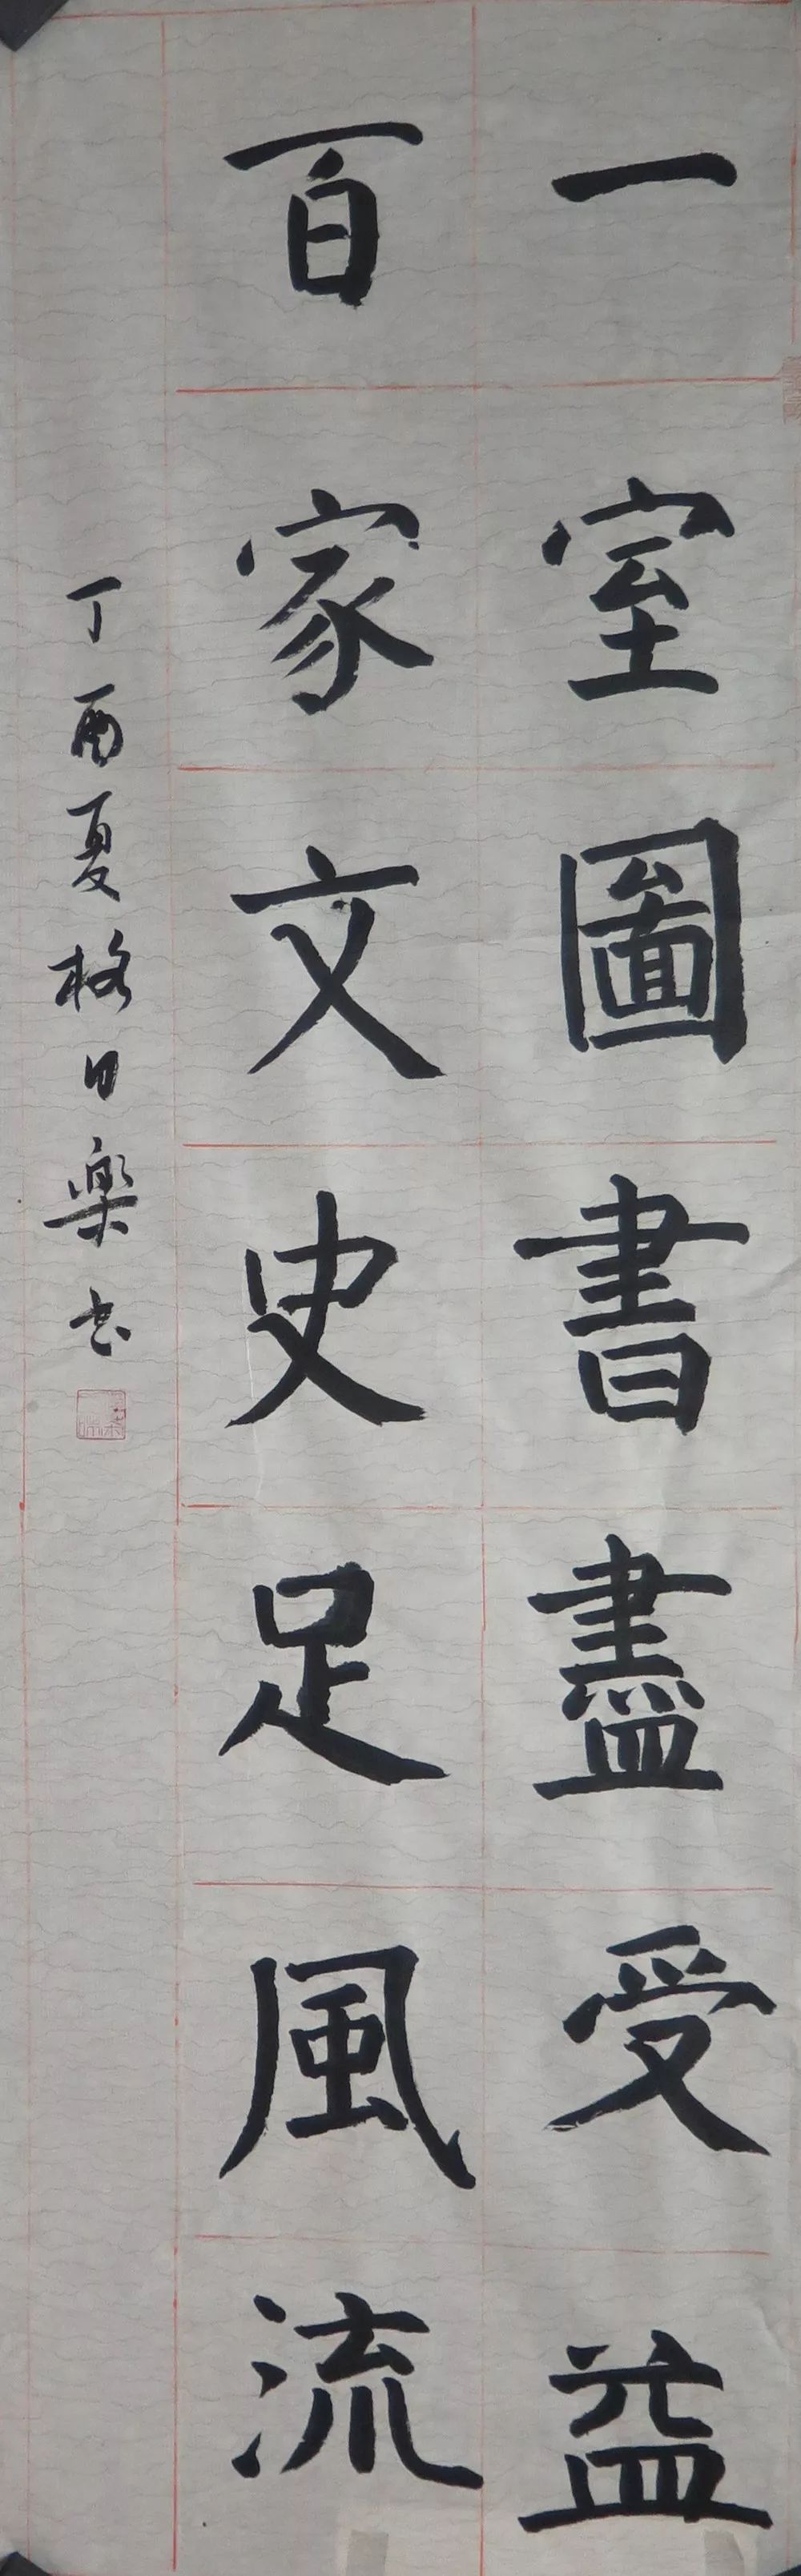 一室圖書盡受益
百家文史足風流
丁酉夏格日樂书